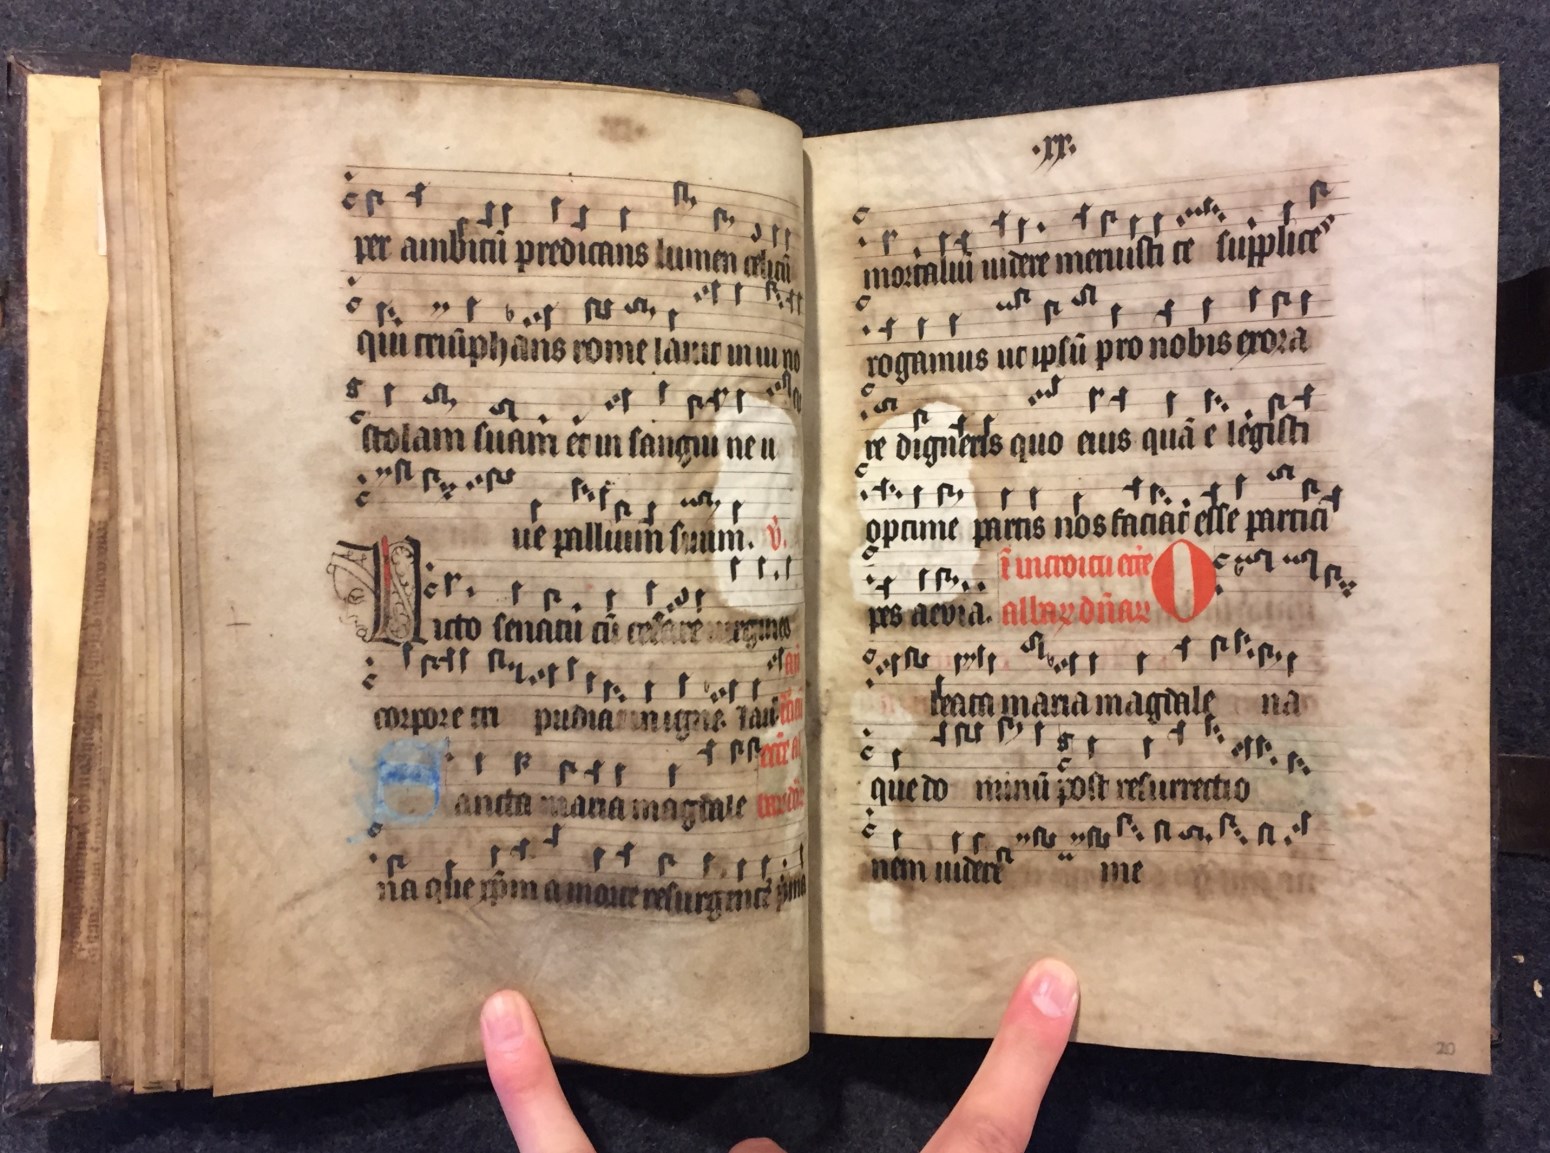 per ambitū predicans lumen celicū
qui triūphans rome lavit in vi no
stolam suam et in sangui ne u
ve pallium suum. v̄.
icto senatū cū cesare
corpore tri pudia in igne
ancta maria magdale
na que xp̄m a morte resurgentē
.xx.
mortaliū videre meruisti te supplice
rogamus ut ipsū pro nobis exora
re digneris quo eius quā e legisti
optime partis nos faciat esse partici
pes aevia. ī introitu ecc̄e
O
beata maria magdale na
que do minū post resurrectio
nem videre me
20